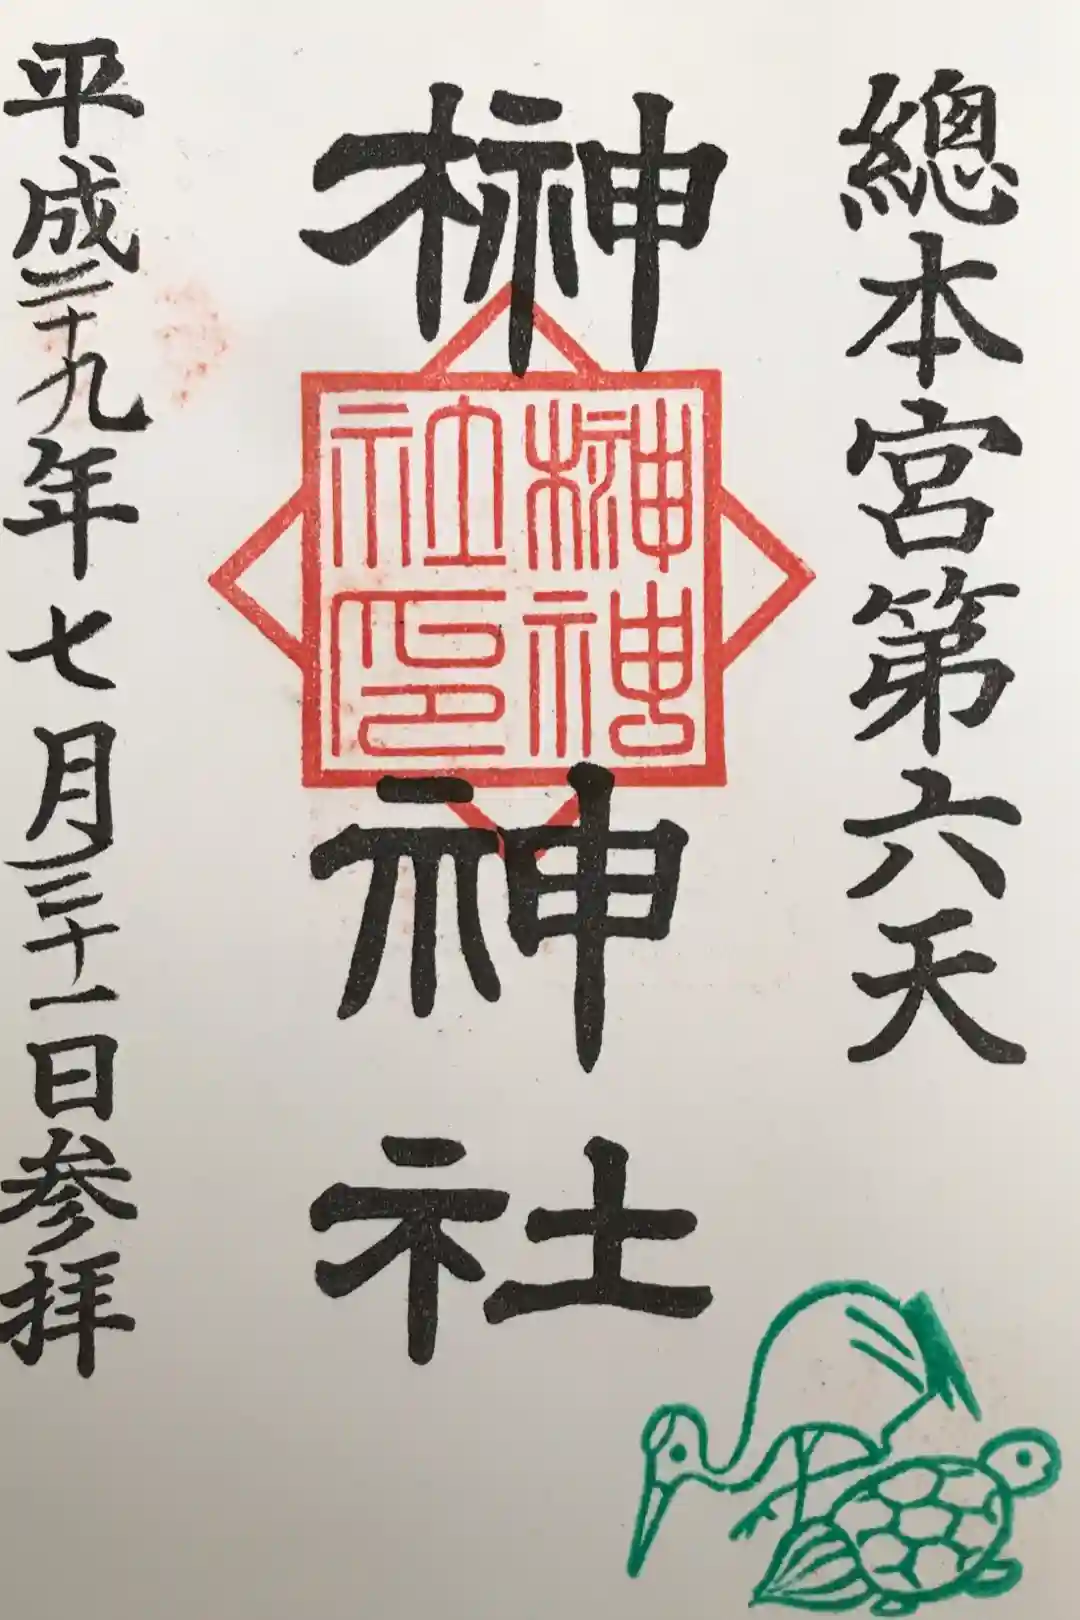 總本宮第六天
榊神社
榊神社印
平成二十九年七月三十一日参拝